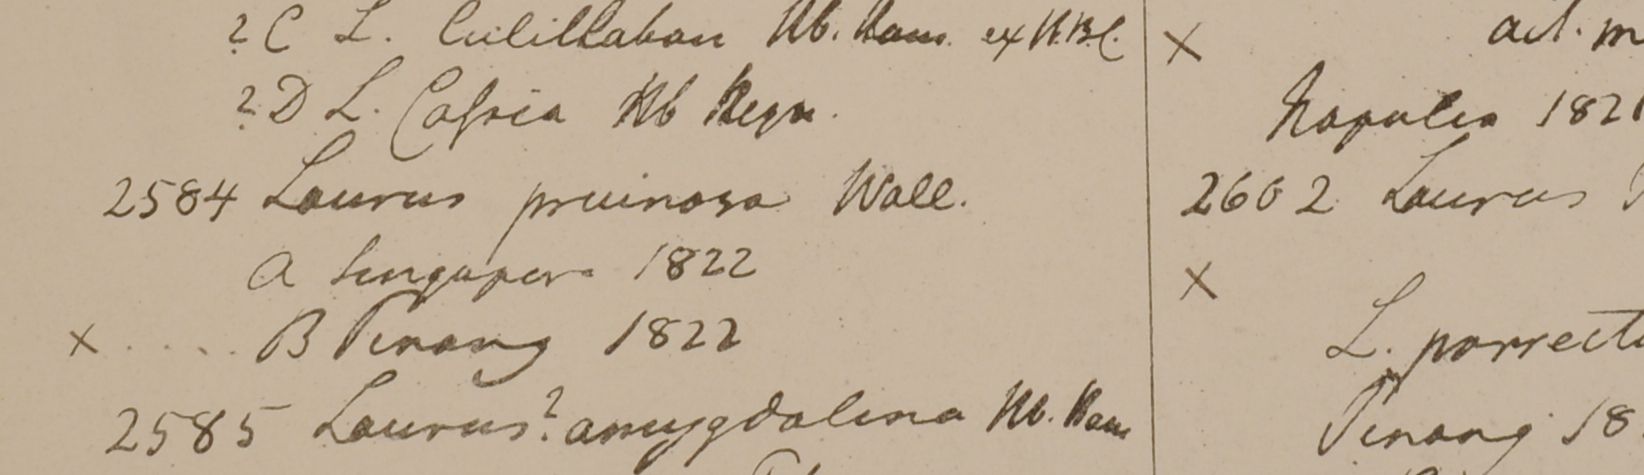 ? C L. Culillaban Hb. Ham. ex H.B.C.
? D L. Cassia Hb Heyn.
2584 Laurus pruinosa Wall.
A Singapore 1822
× .... B Penang 1822
2585 Laurus? amygdalina Hb. Ham
×
Napalia 182
2602 Laurus
×
L. porrect
Penang 18